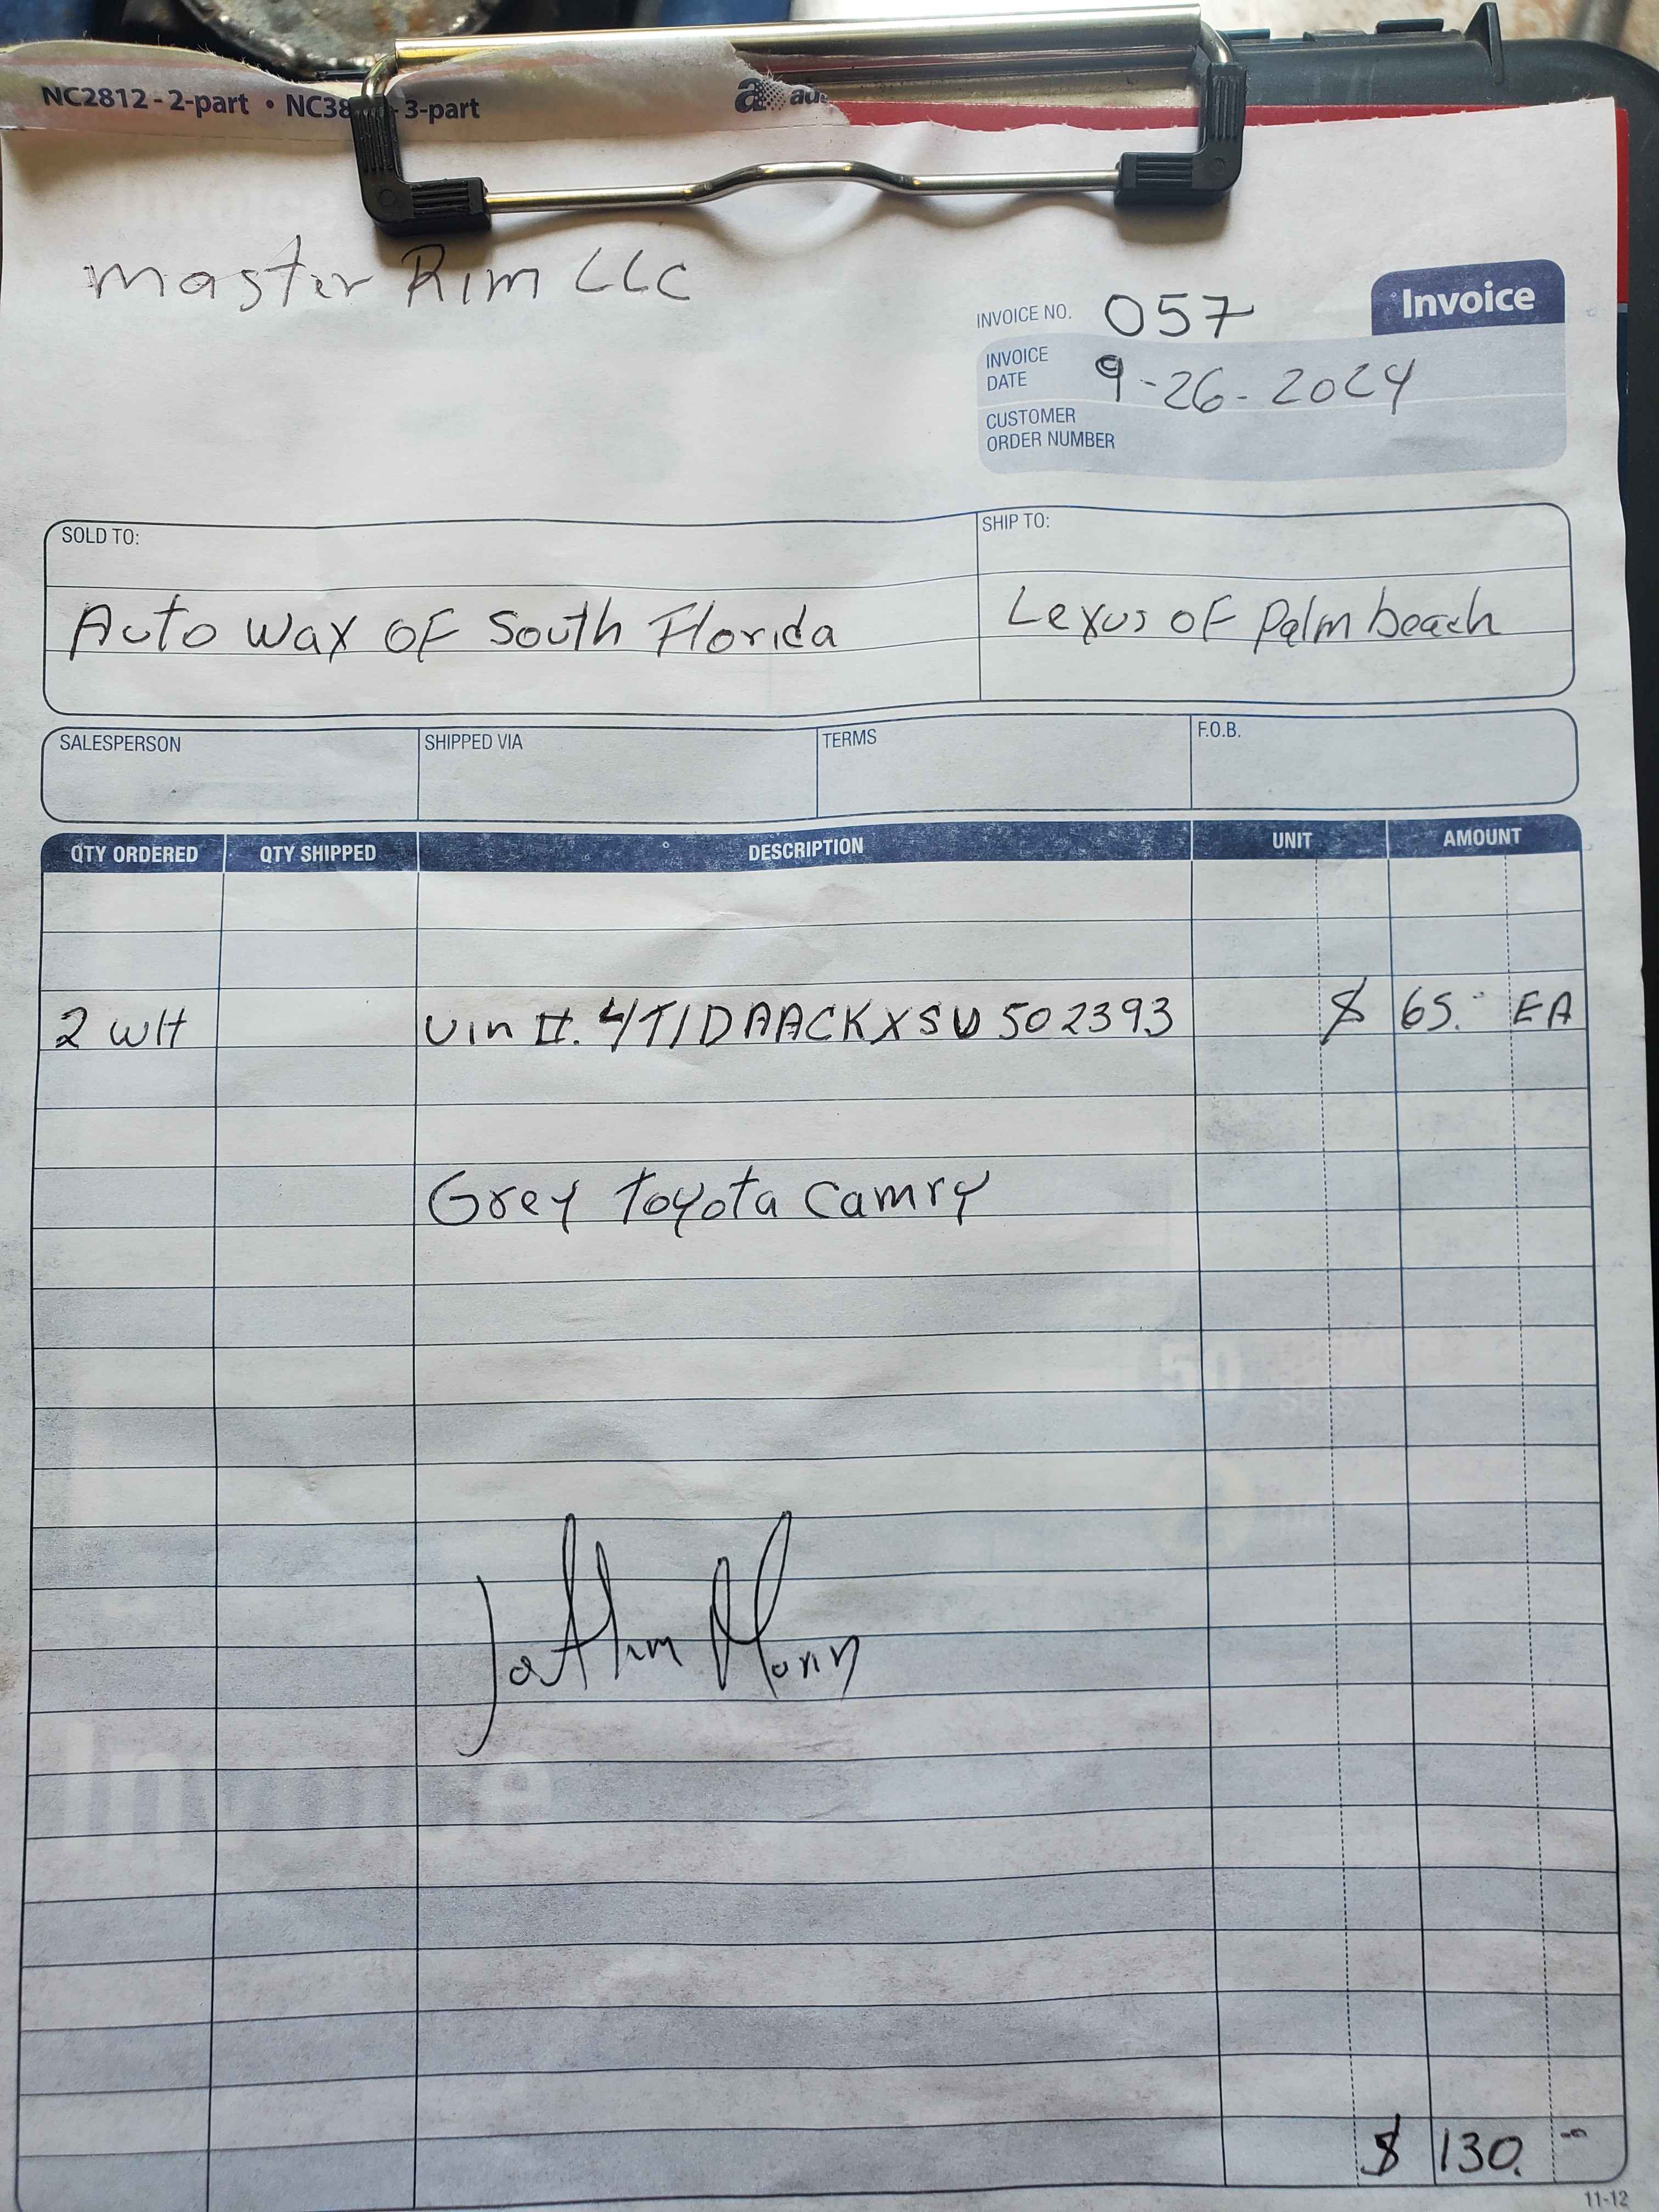 NC2812 - 2-part • NC38 - 3-part
Master Rim LLC
Invoice
INVOICE NO. 057
INVOICE DATE 9-26-2024
CUSTOMER ORDER NUMBER
SOLD TO:
Auto Wax OF South Florida
SHIP TO:
Lexus OF Palm beach
SALESPERSON
SHIPPED VIA
TERMS
F.O.B.
QTY ORDERED QTY SHIPPED DESCRIPTION UNIT AMOUNT
2 WH Vin #. 4T1DAACKXSU502393 $ 65. EA
Grey Toyota Camry
$ 130. -
11-12